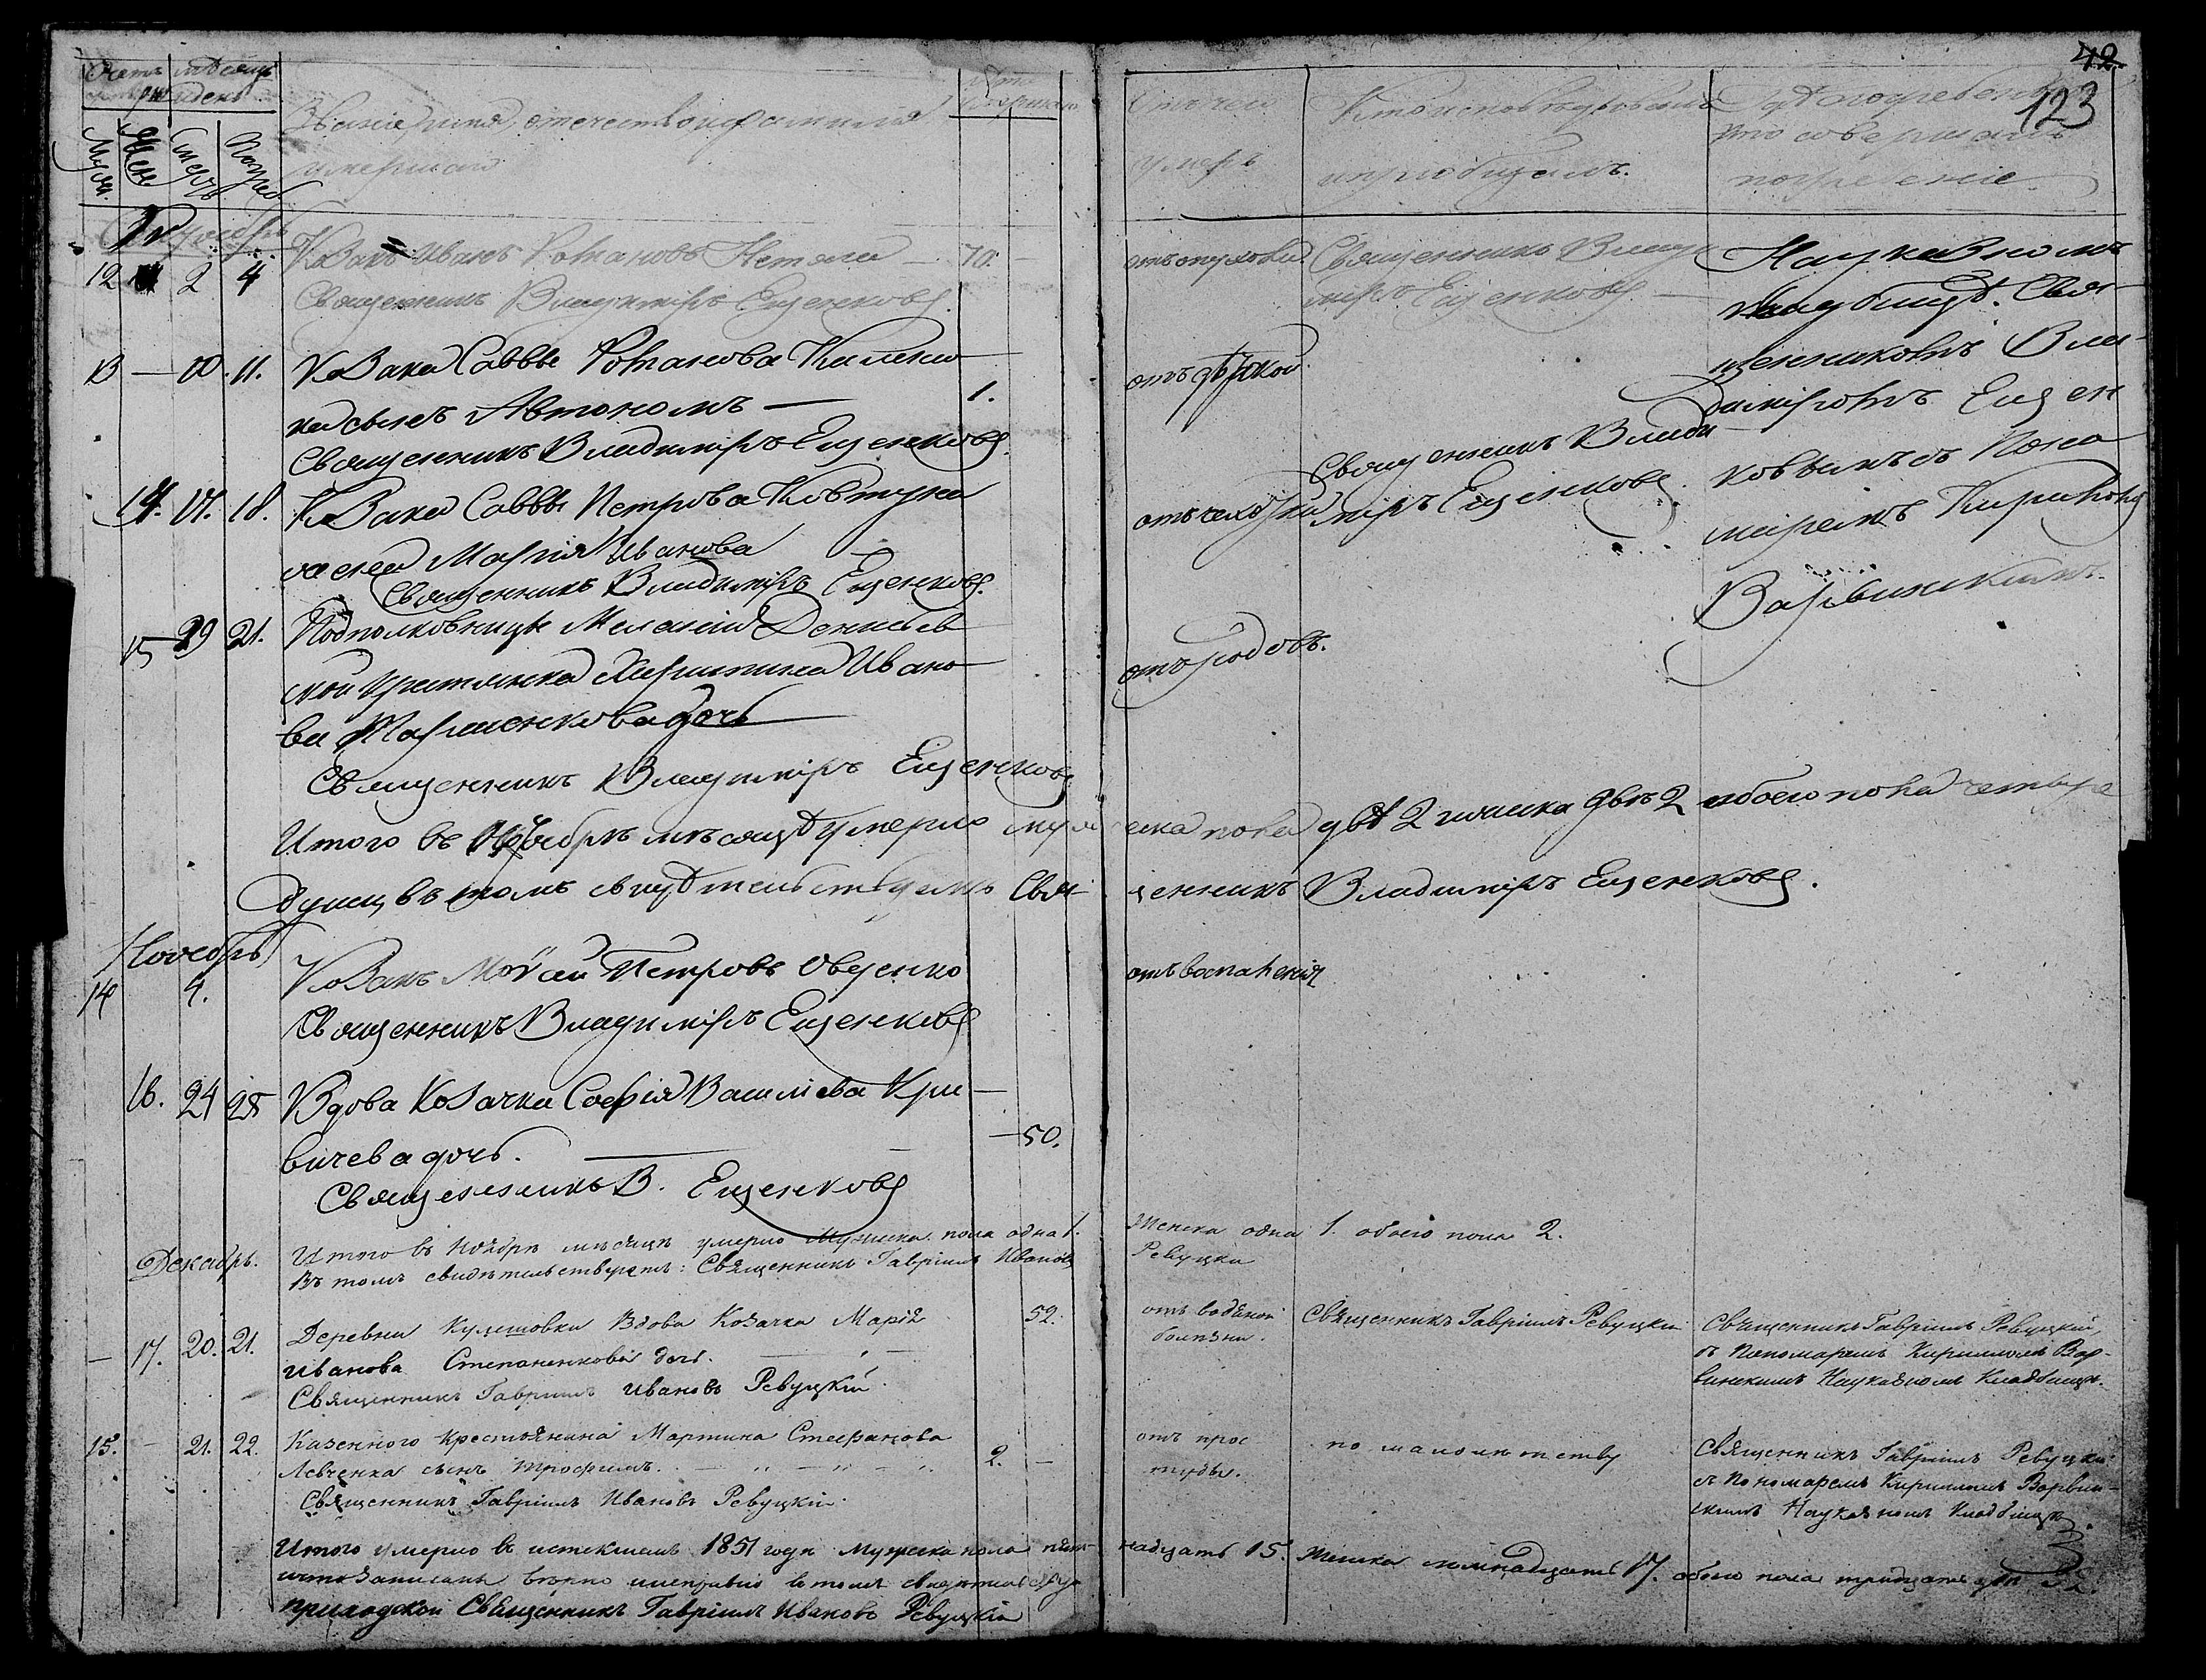 42
123
Счетъ
мѣсяцъ
и день
Муж.
Жен.
Смерть
Погреб
Званіе, имя, отечество и фамилія
умершаго
умершаго
Отъ чего
умеръ
Кто исповѣдывалъ
и пріобщалъ.
Гдѣ погребенъ
кто совершалъ
погребеніе
12
2
4
Козакъ Иванъ Романовъ
70.
Священникъ Владиміръ Ещенковъ
Священникъ Влади
міръ Ещенковъ
На указномъ
кладбищѣ. Свя-
щенникомъ Вла-
диміромъ Ещен
ковымъ съ Поно
маремъ Кириломъ
Варвинскимъ.
13
11.
Козака Саввы Романова
сынъ Автономъ
1.
Священникъ Владиміръ Ещенковъ
14.
17.
18.
Козака Саввы Петрова Ковтуна
жена Марія Иванова
Священникъ Владиміръ Ещенковъ
Священникъ Влади
міръ Ещенковъ
15
19
21.
Подполковницы Меланіи Денисьев
ной крестьянка Ивано
ва дочь
отъ родовъ.
Священникъ Владиміръ Ещенковъ
Итого въ мѣсяцѣ умерло муж
еска пола двѣ 2 женска двѣ 2 обоего пола четыре
душъ въ томъ свидѣтельствуетъ Свя-
щенникъ Владиміръ Ещенковъ.
Ноябрь
14
4.
Козакъ Мойсей Петровъ Овсенко
отъ воспаленія
Священникъ Владиміръ Ещенковъ
16.
24
25
Вдова Козачка Софія Василіева Кри-
вичева дочь.
50.
Священникъ В. Ещенковъ
Итого въ Ноябрѣ мѣсяцѣ умерло Мужска пола одна 1.
Женска одна 1. обоего пола 2.
Декабрь.
Въ томъ свидѣтельствуетъ: Священникъ Гавріилъ Ивановъ
Ревуцкій
17.
20.
21.
Деревни Кулешовки Вдова Козачка Марія
52.
Иванова Степаненкова дочь.
Священникъ Гавріилъ Ивановъ Ревуцкій
отъ водяной
болѣзни.
Священникъ Гавріилъ Ревуцкій
Священникъ Гавріилъ Ревуцкій,
съ Пономаремъ Кирилломъ Вар-
винскимъ На указномъ Кладбищѣ.
15.
21.
22.
Казеннаго крестьянина Мартина Стефанова
Левченка сынъ Трофимъ.
2.
Священникъ Гавріилъ Ивановъ Ревуцкій.
отъ прос
туды.
по малолѣтству
Священникъ Гавріилъ Ревуцкій
съ Пономаремъ Кирилломъ Варвин-
скимъ На указномъ Кладбищѣ
Итого умерло въ истекшемъ 1851 годѣ Мужеска пола пят-
надцать 15. женска семнадцать 17. обоего пола тридцать два 32.
что записаны вѣрно въ томъ
приходской Священникъ Гавріилъ Ивановъ Ревуцкій